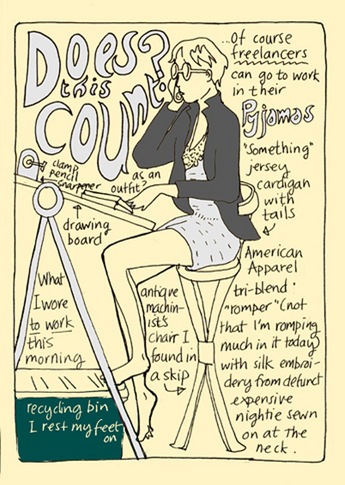 Does
this
Count?
as an
outfit?
...Of course
freelancers
can go to work
in their
Pyjamas
"Something"
jersey
cardigan
with
tails
clamp
pencil
sharpener
drawing
board
What
I wore
to work
this
morning
antique
machin-
ists
chair I
found in
a skip
American
Apparel
tri-blend
"romper" (not
that I'm romping
much in it today)
with silk embroi-
dery from defunct
expensive
nightie sewn
on at the
neck.
recycling bin
I rest my feet
on